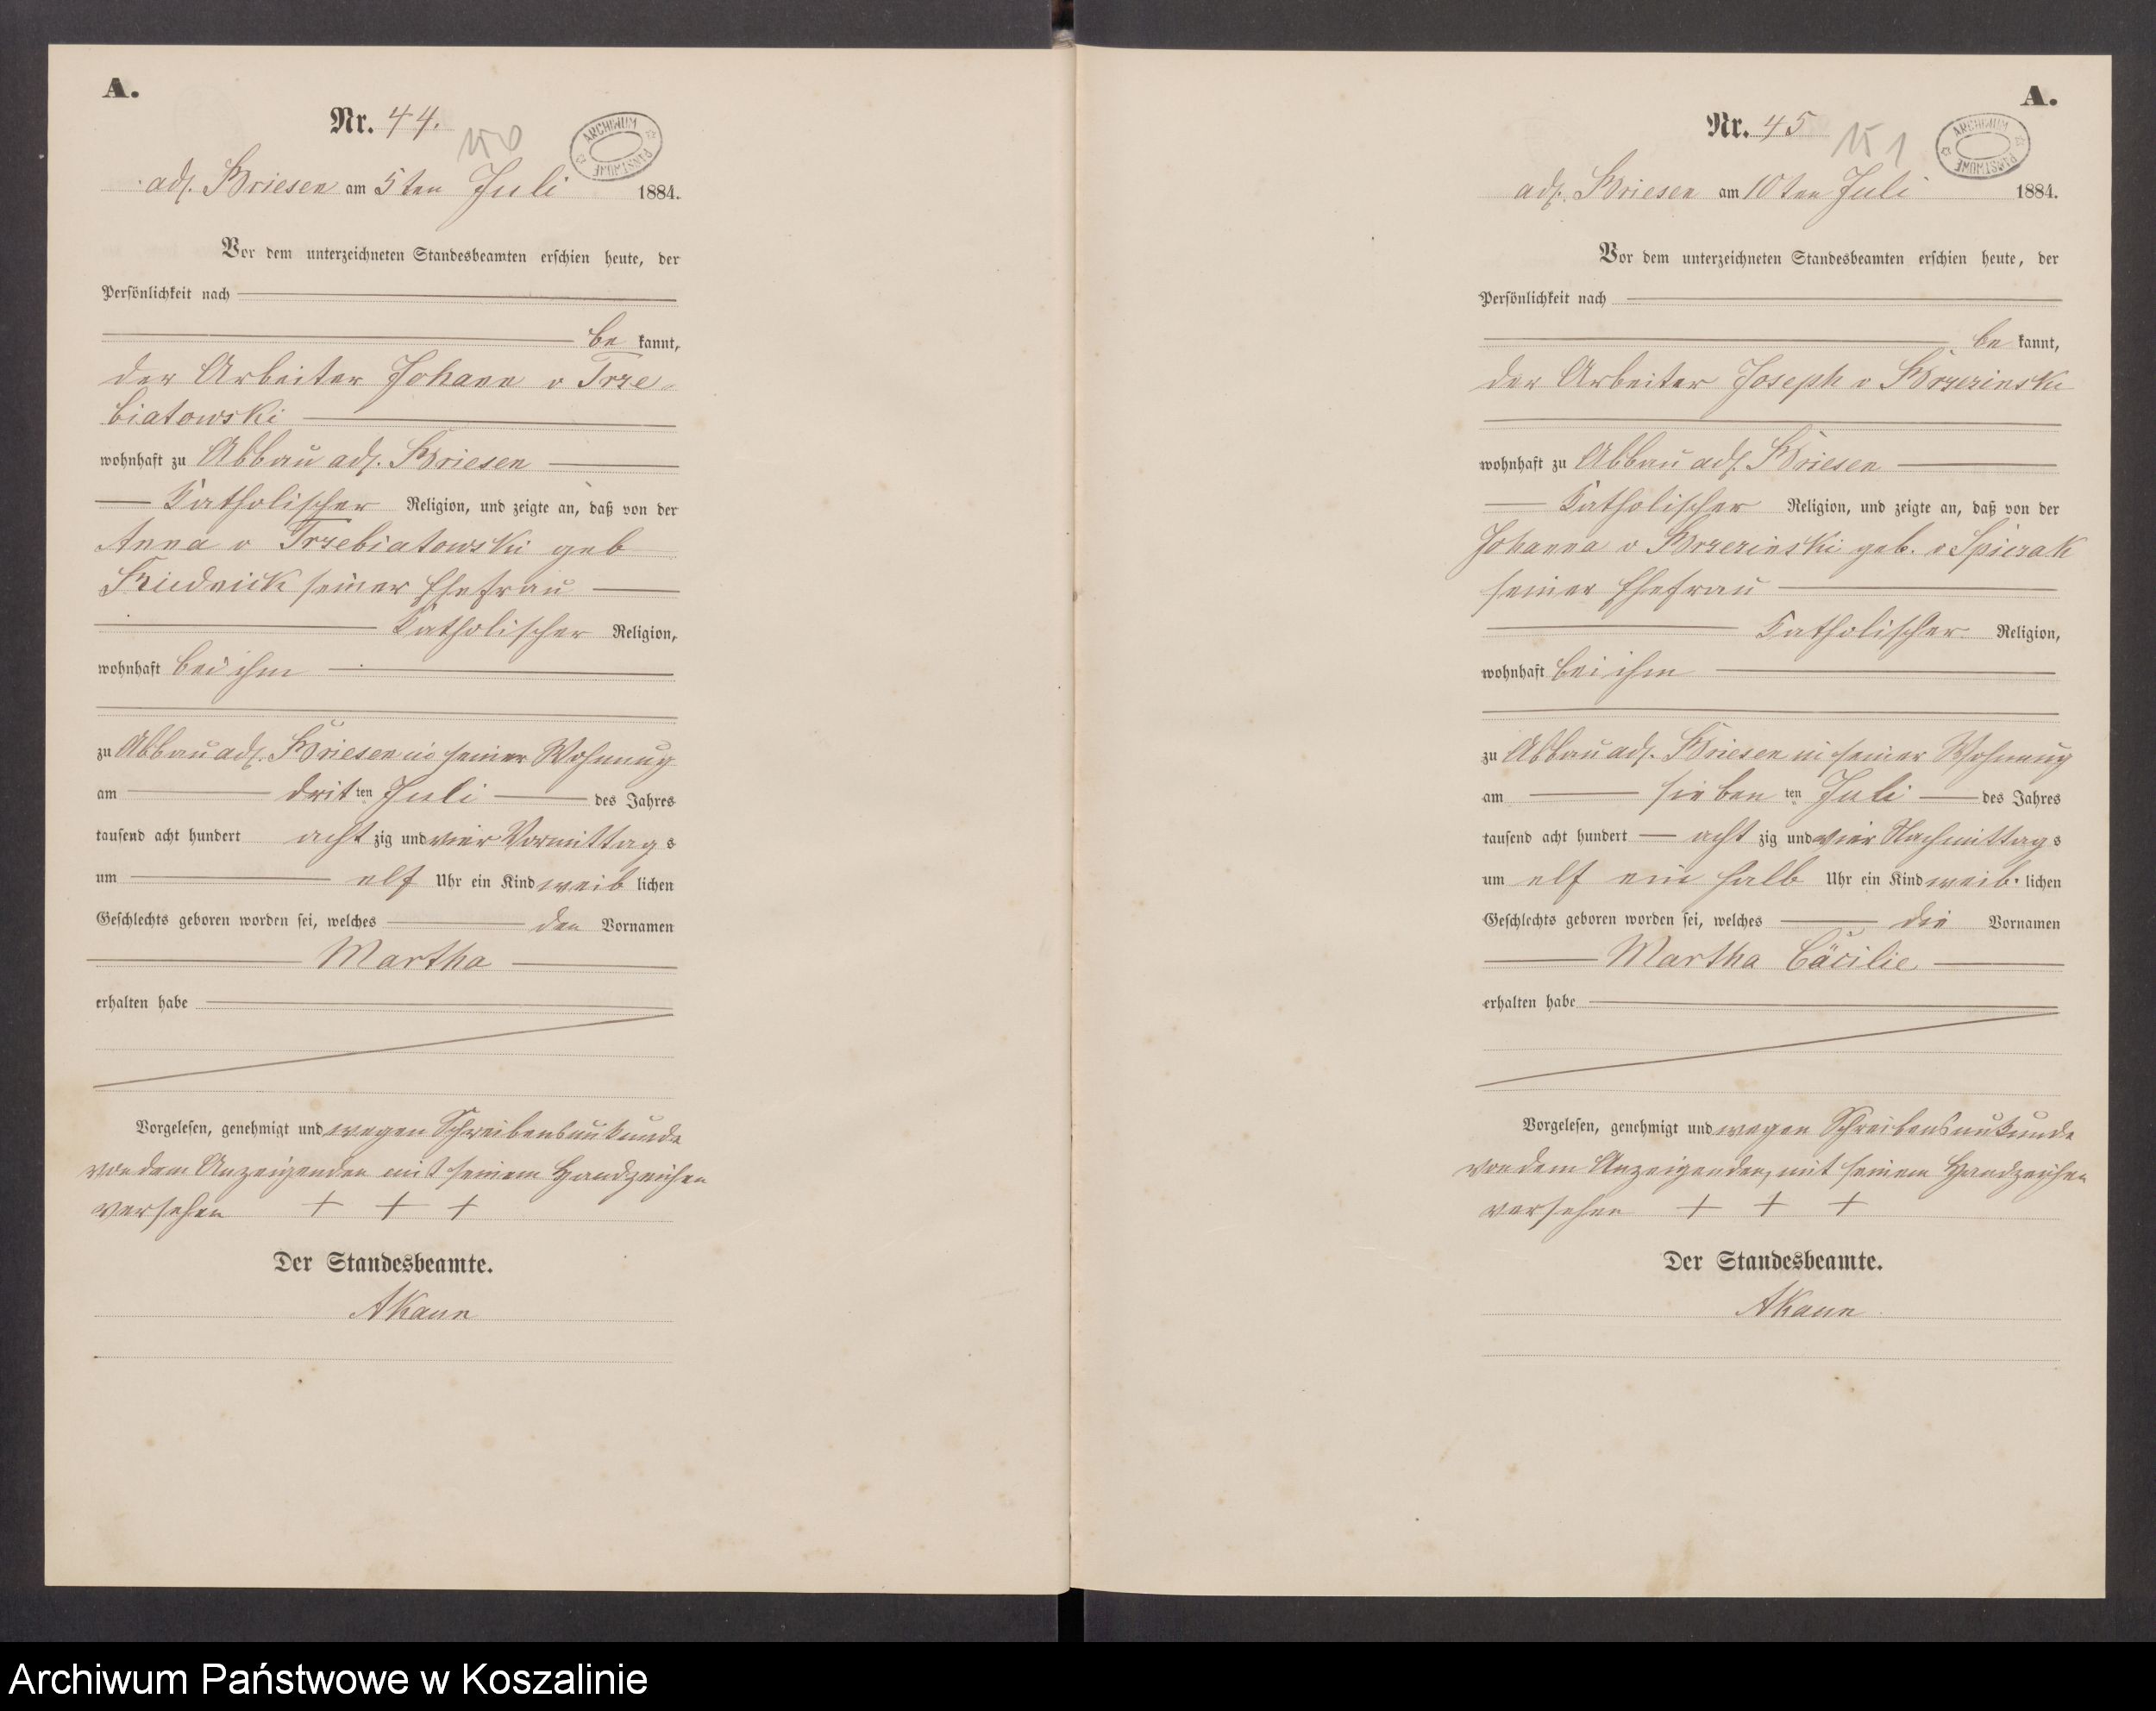 A.
Nr. 44.
150
ARCHIWUM PAŃSTWOWE
adl. Briesen am 5ten Juli 1884.
Vor dem unterzeichneten Standesbeamten erschien heute, der
Persönlichkeit nach
be kannt,
der Arbeiter Johann v Trze-
biatowski
wohnhaft zu Abbau adl. Briesen
Katholischer Religion, und zeigte an, daß von der
Anna v Trzebiatowski geb
seiner Ehefrau
Katholischer Religion,
wohnhaft bei ihm
zu Abbau adl. Briesen in seiner Wohnung
am dritten Juli des Jahres
tausend acht hundert acht zig und vier Vormittags
um elf Uhr ein Kind weib lichen
Geschlechts geboren worden sei, welches den Vornamen
Martha
erhalten habe
Vorgelesen, genehmigt und wegen Schreibensunkunde
von dem Anzeigenden mit seinem Handzeichen
versehen + + +
Der Standesbeamte.
AKaun
A.
Nr. 45
151
ARCHIWUM PAŃSTWOWE
adl. Briesen am 10ten Juli 1884.
Vor dem unterzeichneten Standesbeamten erschien heute, der
Persönlichkeit nach
be kannt,
der Arbeiter Joseph v Brzezinski
wohnhaft zu Abbau adl. Briesen
Katholischer Religion, und zeigte an, daß von der
Johanna v Brzezinski geb. v Spiczak
seiner Ehefrau
Katholischer Religion,
wohnhaft bei ihm
zu Abbau adl. Briesen in seiner Wohnung
am sieben ten Juli des Jahres
tausend acht hundert acht zig und vier Nachmittags
um elf ein halb Uhr ein Kind weib lichen
Geschlechts geboren worden sei, welches die Vornamen
Martha Cäcilie
erhalten habe
Vorgelesen, genehmigt und wegen Schreibensunkunde
von dem Anzeigenden, mit seinem Handzeichen
versehen + + +
Der Standesbeamte.
AKaun
Archiwum Państwowe w Koszalinie